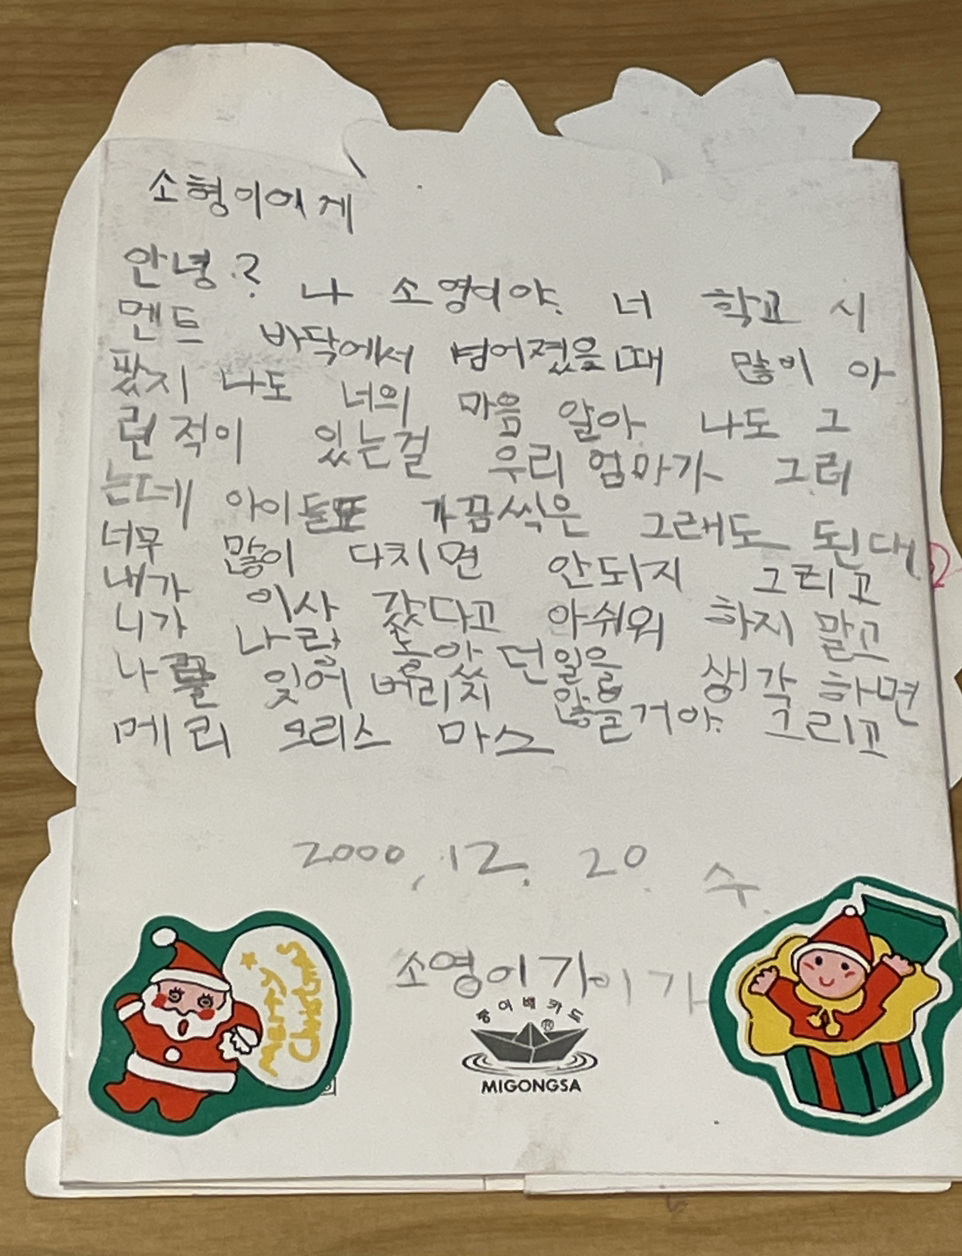 소형이에게
안녕? 나 소영이야. 너 학교 시
멘트 바닥에서 넘어졌을때 많이 아
팠지 나도 너의 마음 알아 나도 그
런적이 있는걸 우리 엄마가 그러
는데 아이들또 가끔씩은 그래도 된대
너무 많이 다치면 안되지 그리고
내가 이사 갔다고 아쉬워 하지 말고
니가 나랑 놀았던일을 생각하면
나를 잊어버리지 않을거야. 그리고
메리 크리스마스
2000.12. 20. 수.
소영이가이가
Merry
Christmas
종이배카드
®
MIGONGSA